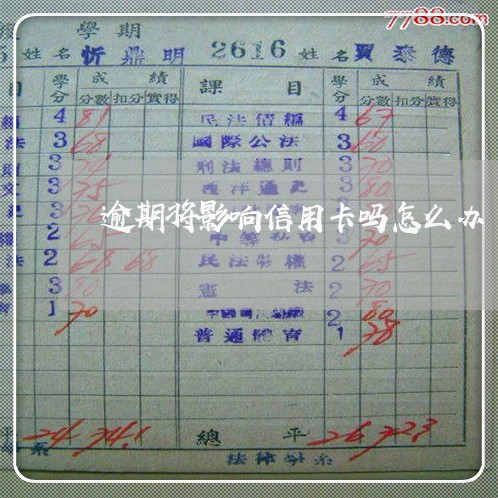 7788.com
學期
姓名 忻鼎明 2616 姓名 賈泰德
目 學分 成績 課目 學分 成績
分數 扣分 實得 分數 扣分 實得
4 81 民法債編 4 67
法 3 68 國際公法 3 60
3 刑法總則 3 70
3 75 西洋通史 3 80
逾期将影响信用卡吗怎么办
2 65 3 70
法 2 68 68 民法物權 2 65
3 80 憲法 2 70
1 70 2 80
普通體育 1 78
平 24 74.1 總平 26 72.3
系 法律學系